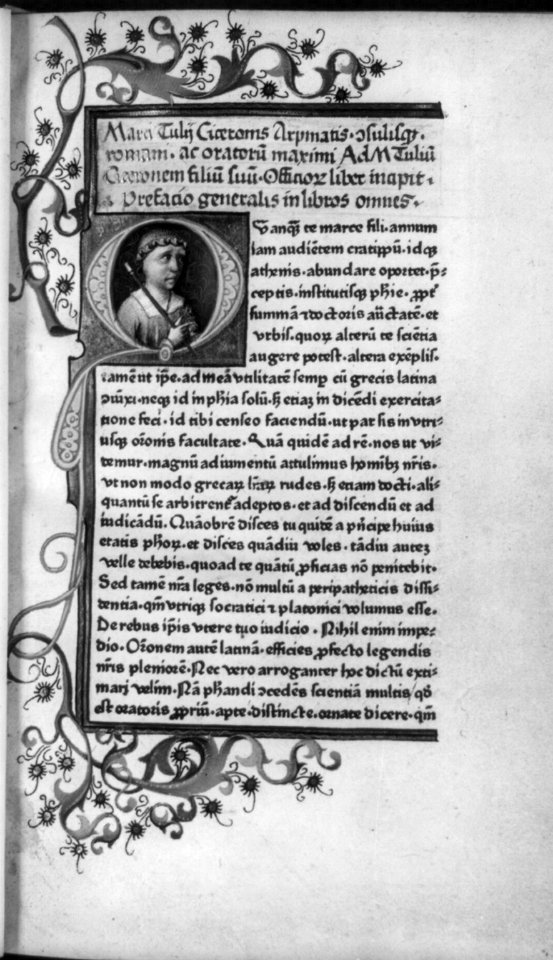 Marci Tulij Ciceronis Arpinatis · ↄsulisqꝫ ·
romani · ac oratorū maximi Ad M Tuliū
Ciceronem filiū suū · Officioꝝ liber incipit ·
Prefacio generalis in libros omnes ·
Vanqꝫ te marce fili · annum
iam audiētem cratippū · idqꝫ
athenis · abundare oportet · p̄-
ceptis · institutisqꝫ phie · ꝓpt̄
summā ⁊ doctoris auctatē · et
vrbis · quoꝝ alterū te sciētia
augere potest · altera exēplis ·
tamē ut ip̄e · ad meā vtilitatē semꝑ cū grecis latina
ↄiūxi · neqꝫ id in phīa solū · sꝫ etiaꝫ in dicēdi exercita-
tione feci · id tibi censeo faciendū · ut par sis in vtri-
usqꝫ or̄onis facultate · Quā quidē ad rē · nos ut vi-
demur · magnū adiumentū attulimus hominibꝫ nr̄is ·
vt non modo grecaꝝ lr̄aꝝ rudes · sꝫ etiam docti · ali-
quantū se arbitrent᷑ adeptos · et ad discendū et ad
iudicādū · Quāobrē disces tu quidē a pn̄cipe huius
etatis ph̄oꝝ · et disces quādiu voles · tādiu auteꝫ
velle debebis · quoad te quātū ꝓficias nō penitebit ·
Sed tamē nr̄a leges · nō multū a peripatheticis dissi-
dentia · qm̄ vtriqꝫ socratici ⁊ platonici volumus esse ·
De rebus ip̄is vtere tuo iudicio · Nihil enim impe-
dio · Or̄onem autē latinā · efficies ꝓfecto legendis
nr̄is pleniorē · Nec vero arroganter hoc dictū exti-
mari velim · Nā ph̄andi ↄcedēs scientiā multis qď
est oratoris ꝓpriū · apte · distincte · ornate dicere · qm̄